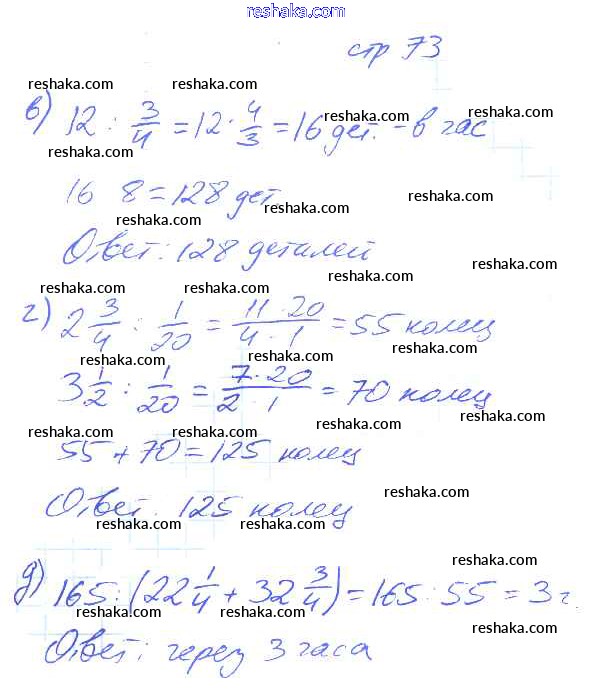 reshaka.com
стр 73
reshaka.com reshaka.com
в) 12 : 3/4 = 12 · 4/3 = 16 дет. - в час
reshaka.com reshaka.com reshaka.com
16 8 = 128 дет
reshaka.com reshaka.com reshaka.com
Ответ: 128 деталей
reshaka.com reshaka.com
reshaka.com reshaka.com
г) 2 3/4 : 1/20 = 11·20/4·1 = 55 колец
reshaka.com reshaka.com
3 1/2 : 1/20 = 7·20/2·1 = 70 колец
reshaka.com reshaka.com reshaka.com
55 + 70 = 125 колец
reshaka.com
Ответ. 125 колец
reshaka.com reshaka.com
reshaka.com
д) 165 : (22 1/4 + 32 3/4) = 165 : 55 = 3 г.
reshaka.com reshaka.com reshaka.com
Ответ: через 3 часа
reshaka.com reshaka.com